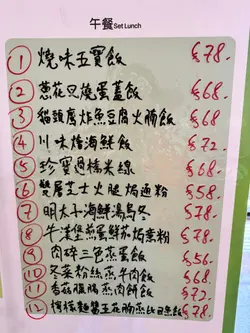 午餐 Set Lunch
① 燒味五寶飯 $78.
② 葱花叉燒蛋蓋飯 $68
③ 貓頭房炸魚豆腐火腩飯 $68
④ 川味燴海鮮飯 $72.
⑤ 珍寶過橋米線 $68.
⑥ 蟹居芝士火腿焗通粉 $58
⑦ 明太子海鮮湯烏冬 $78.
⑧ 牛漢堡煎蛋鮮茄焗意粉 $78.
⑨ 肉碎三色蒸蛋飯 $56.
⑩ 冬菜粉絲蒸牛肉飯 $68
⑪ 香菇臘腸蒸肉餅飯 $72.
⑫ 檸檬麵醬豆腐蒸比目魚飯 $78.